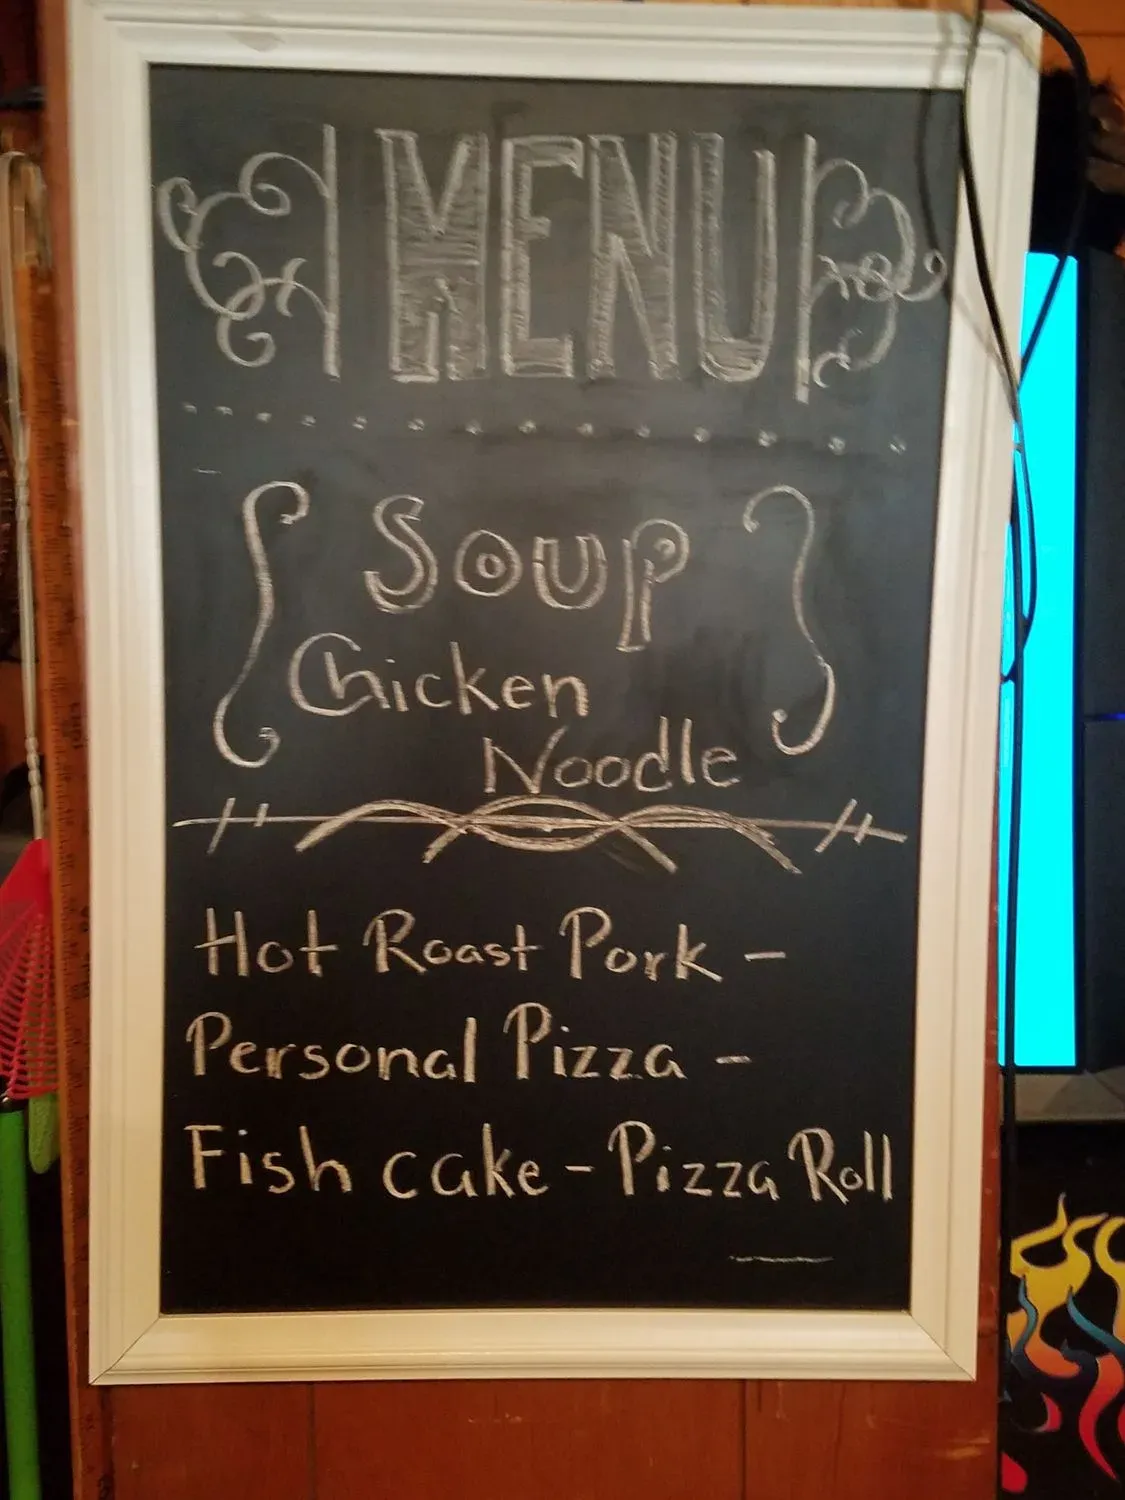 MENU
Soup
Chicken
Noodle
Hot Roast Pork -
Personal Pizza -
Fish cake - Pizza Roll